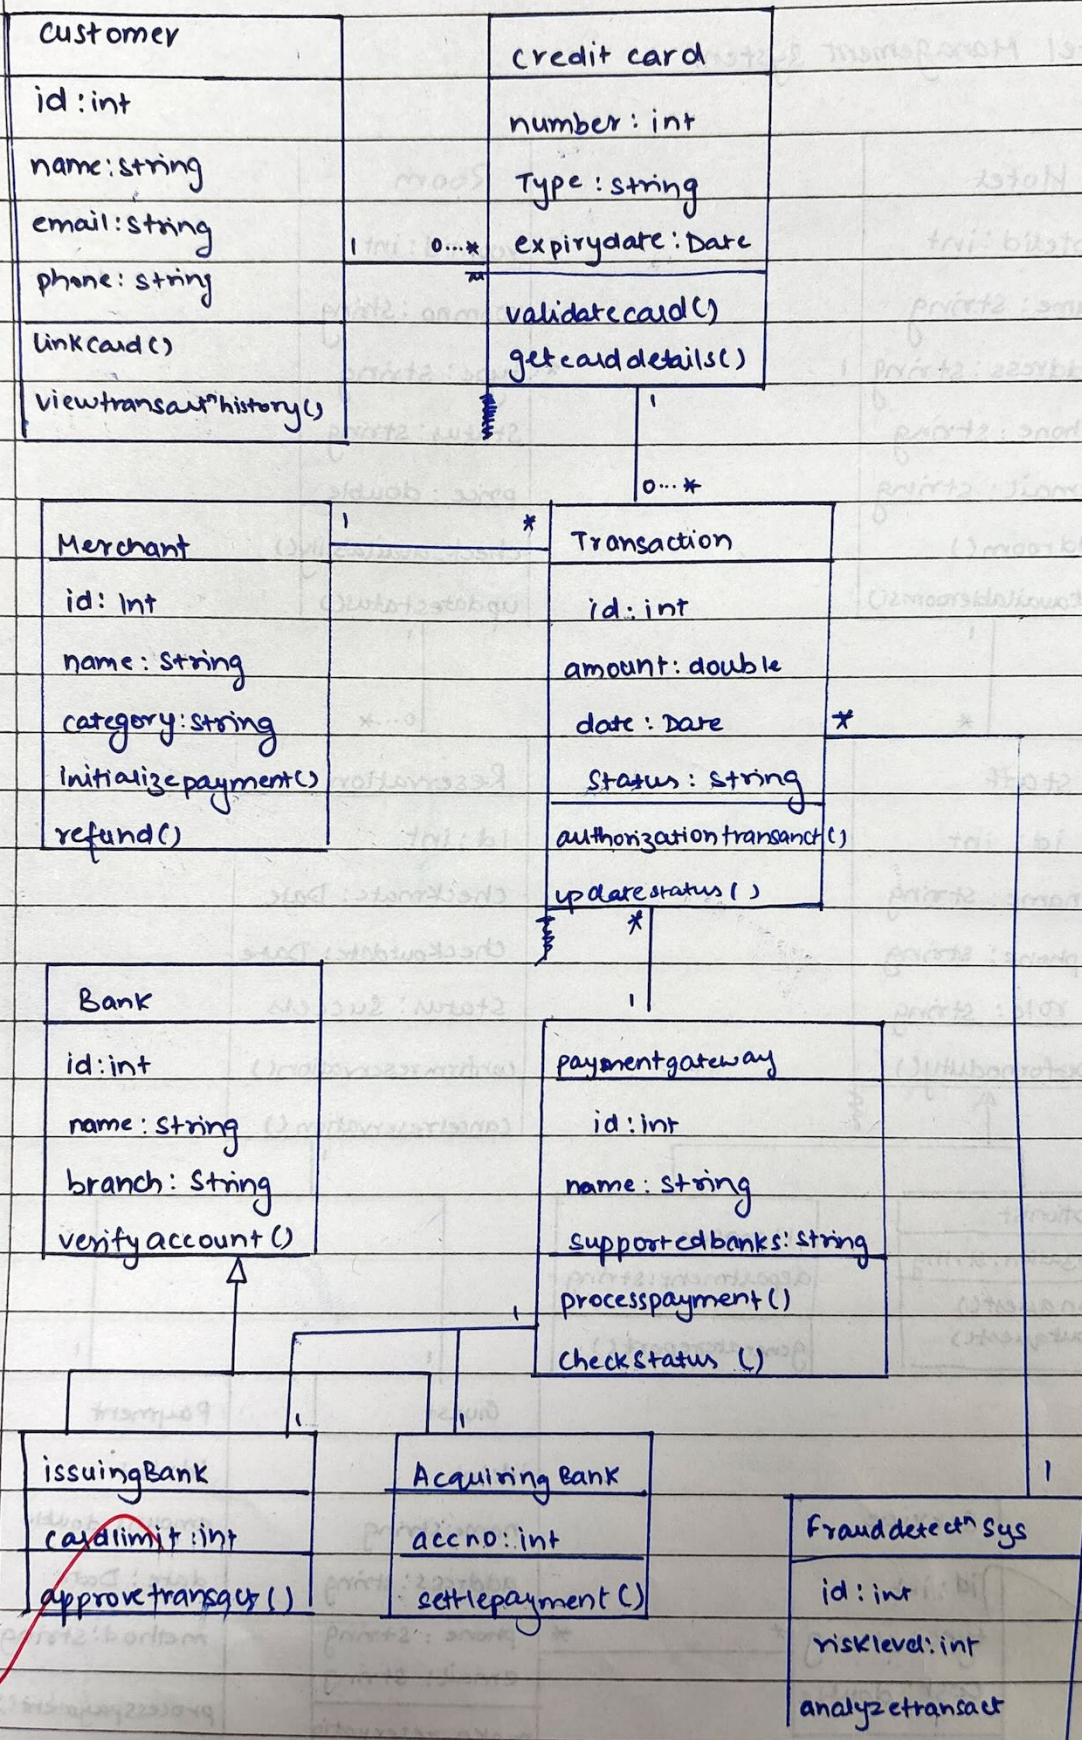 customer
id : int
name : string
email : string
phone : string
linkcard ()
viewtransactⁿhistory()
1 0...*
credit card
number : int
Type : string
expirydate : Date
validatecard ()
getcard details()
1
0...*
Merchant
id : Int
name : string
category : string
initializepayment()
refund()
1 *
Transaction
id : int
amount : double
date : Date
status : string
authorizationtransanct()
updatestatus ( )
*
1
*
1
Bank
id : int
name : string
branch : String
verify account ()
paymentgateway
id : int
name : string
supportedbanks : string
processpayment ()
checkstatus ()
1
1
1
issuingBank
cardlimit : int
approvetransact ()
Acquiring Bank
accno : int
settlepayment ()
Frauddetectⁿ sys
id : int
risklevel : int
analyzetransact